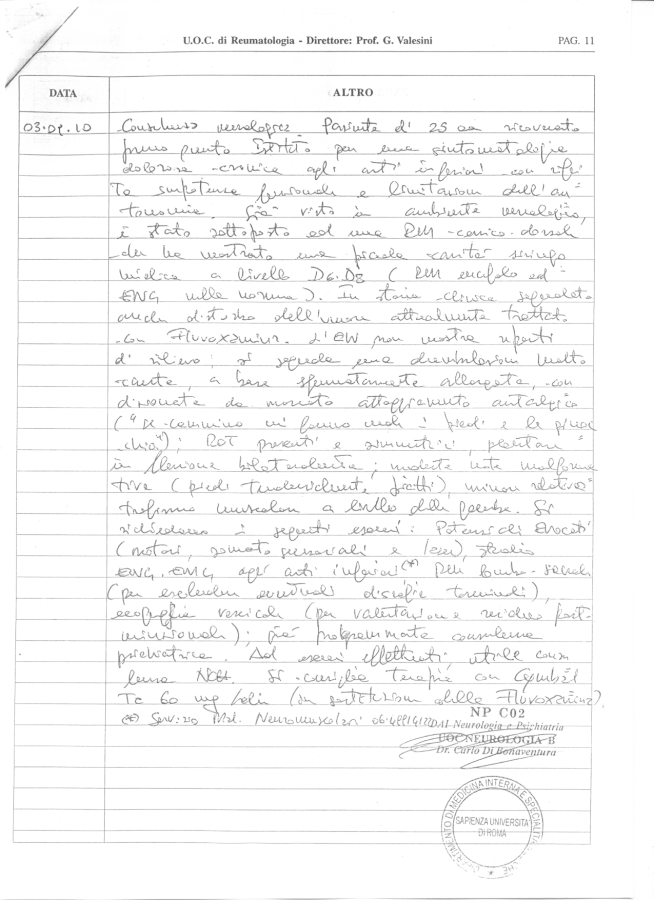 U.O.C. di Reumatologia - Direttore: Prof. G. Valesini PAG. 11
DATA ALTRO
03.09.10 Consulenza neurologica Paziente di 25 aa ricoverato
presso questo Istituto per una sintomatologia
dolorosa cronica agli arti inferiori con
impotenza funzionale e limitazioni dell'au=
tonomia. Già visto in ambiente neurologico,
è stato sottoposto ad una RM cervico-dorsale
che ha mostrato una piccola cavità siringo
mielica a livello D6-D8 (RM encefalo ed
ENG nella norma). In storia clinica segnalato
anche disturbo dell'umore attualmente trattato
con Fluvoxamina. L'EN non mostra reperti
di rilievo; si segnala una deambulazione molto
cauta, a base spuntatamente allargata, con
da marcato atteggiamento antalgico
("se cammino mi fanno male i piedi e le ginoc
chia"); ROT presenti e simmetrici, plantari
in flessione bilateralmente; modeste note malforma
tive (piedi piatti), minori relativo=
trofismo muscolare a livello delle gambe. Si
richiedono i seguenti esami: Potenziali Evocati
(motori, somato sensoriali e laser), studio
ENG-EMG agli arti inferiori(*) RM lombo-sacrale
(per escludere eventuali disrafie terminali),
ecografia vescicale (per valutazione residuo post-
minzionale); già programmata consulenza
psichiatrica. Ad esami effettuati, utile consu
lenza Si consiglia terapia con Cymbal
Ta 60 mg (in sostituzione della Fluvoxamina).
(*) Servizio Mal. Neuromuscolari
NP C02
DAI Neurologia e Psichiatria
UOC NEUROLOGIA B
Dr. Carlo Di Bonaventura
DIPARTIMENTO DI MEDICINA INTERNA E SPECIALITÀ
SAPIENZA UNIVERSITÀ
DI ROMA